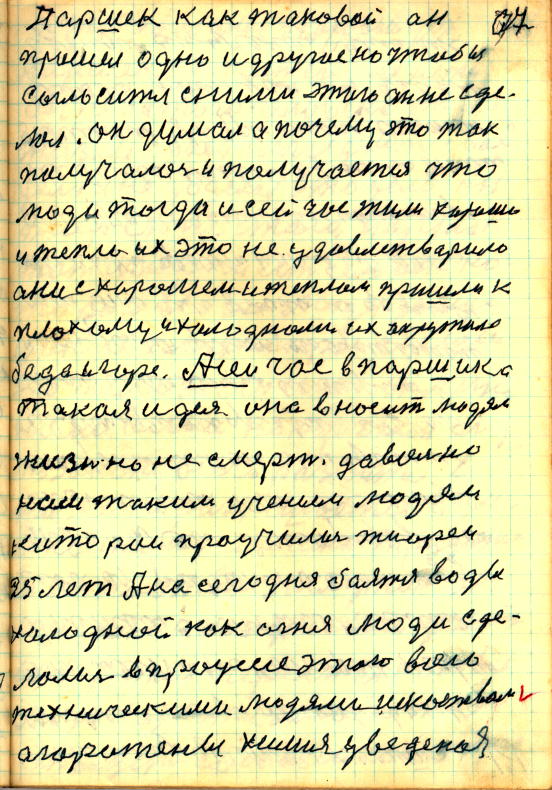 Паршек как таковой ан 37
прошел одно и другое но чтобы
согласится сними этого ан не сде-
лал. он думал а почему это так
получалося и получается что
люди тогда и сей час жили хорошо
и тепло их это не удовлетварило
ани с хорошем и теплом пришли к
плохому и холодному их акружило
беда и горе. А сей час в паршика
такая идея она вносит людям
жизнь но не смерть. даволно
нам таким ученим людям
которои проучилис теореи
25 лет А на сегодня баятя воды
холодной как огня люди сде-
лалис в процессе этого всего
техническими людями искоством
агоражены химия уведеная